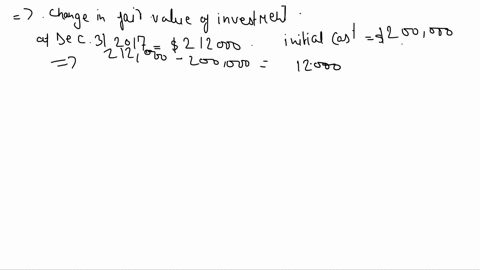 => . Change in fair value of investment .
at Dec. 31 2017 = $ 212000 . initial cost = $200,000
=> 212,000 - 200,000 = 12000